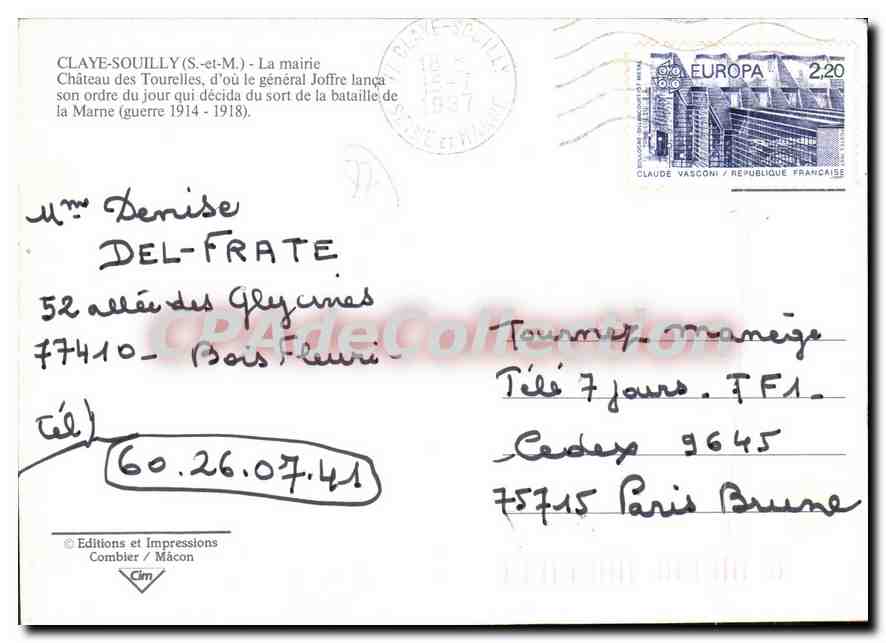 CLAYE-SOUILLY (S.-et-M.) - La mairie
Château des Tourelles, d'où le général Joffre lança
son ordre du jour qui décida du sort de la bataille de
la Marne (guerre 1914 - 1918).
CLAYE-SOUILLY
18
1987
SEINE ET MARNE
EUROPA
2,20
CLAUDE VASCONI / REPUBLIQUE FRANÇAISE
Mme Denise
DEL-FRATE
52 allée des Glycines
77410 - Bois Fleuri -
Tél)
60.26.07.41
CPAdeCollection.com
Tournez manège
Télé 7 jours. TF1-
Cedex 9645
75715 Paris Brune
© Editions et Impressions
Combier / Mâcon
Cim